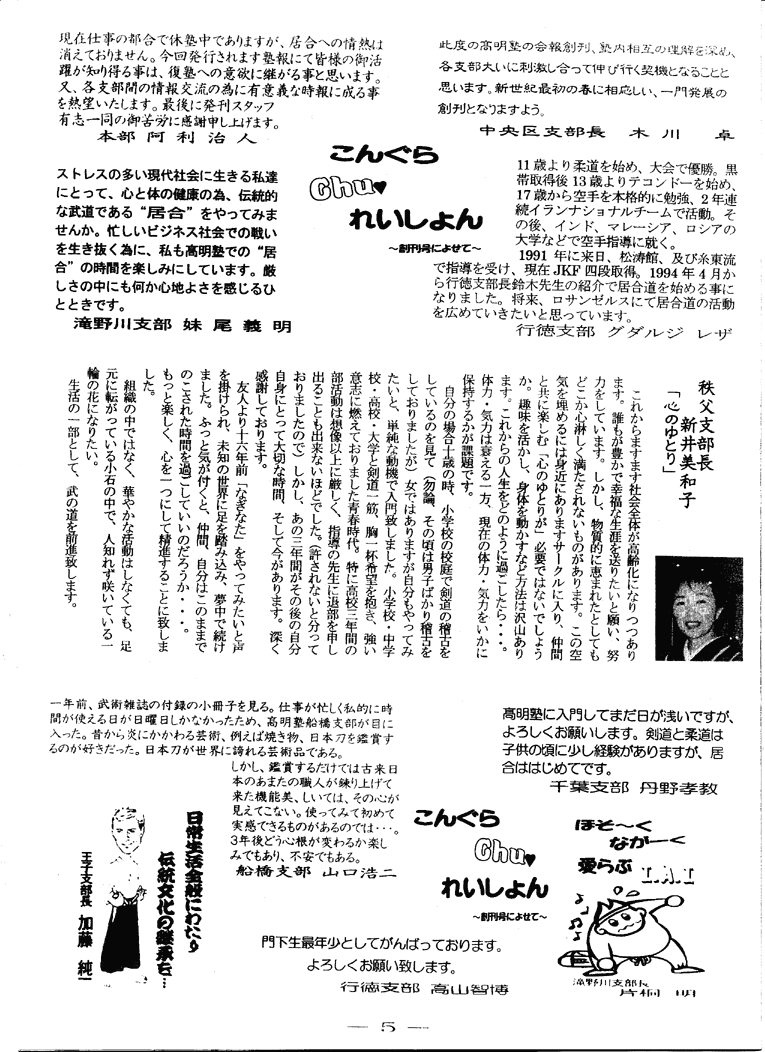 現在仕事の都合で休塾中でありますが、居合への情熱は
消えておりません。今回発行されます塾報にて皆様の御活
躍が知り得る事は、復塾への意欲に継がる事と思います。
又、各支部間の情報交流の為に有意義な時報に成る事
を熱望いたします。最後に発刊スタッフ
有志一同の御苦労に感謝申し上げます。
本部 阿利治人
此度の高明塾の会報創刊、塾内相互の理解を深め、
各支部大いに刺激し合って伸び行く契機となることと
思います。新世紀最初の春に相応しい、一門発展の
創刊となりますよう。
中央区支部長 木川 卓
こんぐら
Chu♥
れいしょん
～創刊号によせて～
ストレスの多い現代社会に生きる私達
にとって、心と体の健康の為、伝統的
な武道である“居合”をやってみま
せんか。忙しいビジネス社会での戦い
を生き抜く為に、私も高明塾での“居
合”の時間を楽しみにしています。厳
しさの中にも何か心地よさを感じるひ
とときです。
滝野川支部 妹尾義明
11歳より柔道を始め、大会で優勝。黒
帯取得後13歳よりテコンドーを始め、
17歳から空手を本格的に勉強、2年連
続イランナショナルチームで活動。そ
の後、インド、マレーシア、ロシアの
大学などで空手指導に就く。
1991年に来日、松涛館、及び糸東流
で指導を受け、現在JKF四段取得。1994年4月か
ら行徳支部長鈴木先生の紹介で居合道を始める事に
なりました。将来、ロサンゼルスにて居合道の活動
を広めていきたいと思っています。
行徳支部 グダルジ レザ
秩父支部長
新井美和子
「心のゆとり」
これからますます社会全体が高齢化になりつつあり
ます。誰もが豊かで幸福な生涯を送りたいと願い、努
力をしています。しかし、物質的に恵まれたとしても
どこか淋しく満たされないものがあります。この空
気を埋めるには身近にありますサークルに入り、仲間
と共に楽しむ「心のゆとりが」必要ではないでしょう
か。趣味を活かし、身体を動かすなど方法は沢山あり
ます。これからの人生をどのように過ごしたら・・・。
体力・気力は衰える一方、現在の体力・気力をいかに
保持するかが課題です。
自分の場合十歳の時、小学校の校庭で剣道の稽古を
しているのを見て（勿論、その頃は男子ばかり稽古を
しておりましたが）女ではありますが自分もやってみ
たいと、単純な動機で入門致しました。小学校・中学
校・高校・大学と剣道一筋、胸一杯希望を抱き、強い
意志に燃えておりました青春時代。特に高校三年間の
部活動は想像以上に厳しく、指導の先生に退部を申し
出ることも出来ないほどでした。（許されないと分って
おりましたので）しかし、あの三年間がその後の自分
自身にとって大切な時間、そして今があります。深く
感謝しております。
友人より十六年前「なぎなた」をやってみたいと声
を掛けられ、未知の世界に足を踏み込み、夢中で続け
ました。ふっと気が付くと、仲間、自分はこのままで
のこされた時間を過ごしていいのだろうか・・・。
もっと楽しく、心を一つにして精進することに致しま
した。
組織の中ではなく、華やかな活動はしなくても、足
元に転がっている小石の中で、人知れず咲いている一
輪の花になりたい。
生活の一部として、武の道を前進致します。
一年前、武術雑誌の付録の小冊子を見る。仕事が忙しく私的に時
間が使える日が日曜日しかなかったため、高明塾船橋支部が目に
入った。昔から炎にかかわる芸術、例えば焼き物、日本刀を鑑賞す
るのが好きだった。日本刀が世界に誇れる芸術品である。
しかし、鑑賞するだけでは古来日
本のあまたの職人が練り上げて
来た機能美、しいては、その心が
見えてこない。使ってみて初めて
実感できるものがあるのでは・・・。
3年後どう心根が変わるか楽し
みでもあり、不安でもある。
船橋支部 山口浩二
高明塾に入門してまだ日が浅いですが、
よろしくお願いします。剣道と柔道は
子供の頃に少し経験がありますが、居
合ははじめてです。
千葉支部 丹野孝教
日常生活全般にわたり
伝統文化の継承を…
王子支部長 加藤純一
こんぐら
Chu♥
れいしょん
～創刊号によせて～
ほそ～く
なが～く
愛らぶ I.A.I
滝野川支部長
片桐 明
門下生最年少としてがんばっております。
よろしくお願い致します。
行徳支部 高山智博
— 5 —